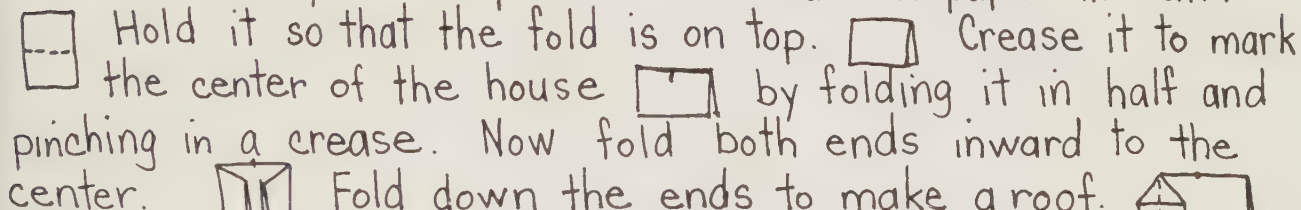 Hold it so that the fold is on top. Crease it to mark
the center of the house by folding it in half and
pinching in a crease. Now fold both ends inward to the
center. Fold down the ends to make a roof.